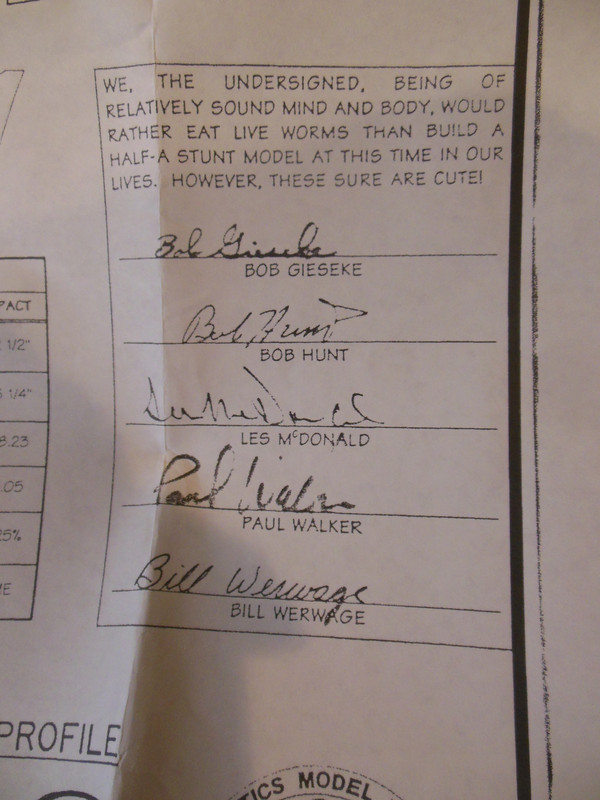 WE, THE UNDERSIGNED, BEING OF
RELATIVELY SOUND MIND AND BODY, WOULD
RATHER EAT LIVE WORMS THAN BUILD A
HALF-A STUNT MODEL AT THIS TIME IN OUR
LIVES. HOWEVER, THESE SURE ARE CUTE!
Bob Gieseke
BOB GIESEKE
Bob Hunt
BOB HUNT
Les McDonald
LES McDONALD
Paul Walker
PAUL WALKER
Bill Werwage
BILL WERWAGE
PACT
1/2"
1/4"
8.23
.05
25%
E
PROFILE
TICS MODEL